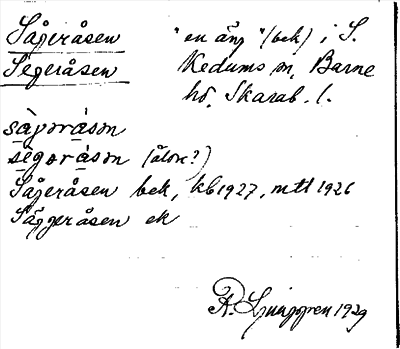 Sågeråsen "en äng" (bek) i S.
Segeråsen Kedums sn, Barne
hd. Skarab. l.
sàgəråsən
sègəråsən (äldre?)
Sågeråsen bek, kb 1927, mtl 1926
Säggeråsen ek
R. Ljunggren 1929